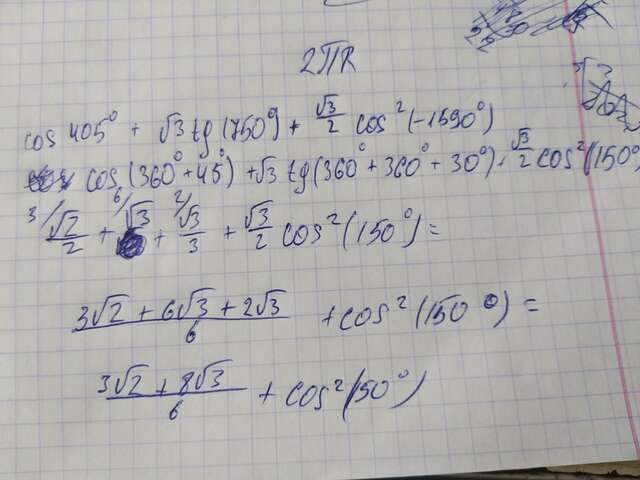 2πR
cos 405° + √3 tg(750°) + √3/2 cos²(-1590°)
cos(360° + 45°) + √3 tg(360° + 360° + 30°) + √3/2 cos²(150°
3/ √2/2 + 6/ √3 + 2/ √3/3 + √3/2 cos²(150°) =
3√2 + 6√3 + 2√3 / 6 + cos²(150°) =
3√2 + 8√3 / 6 + cos²(150°)